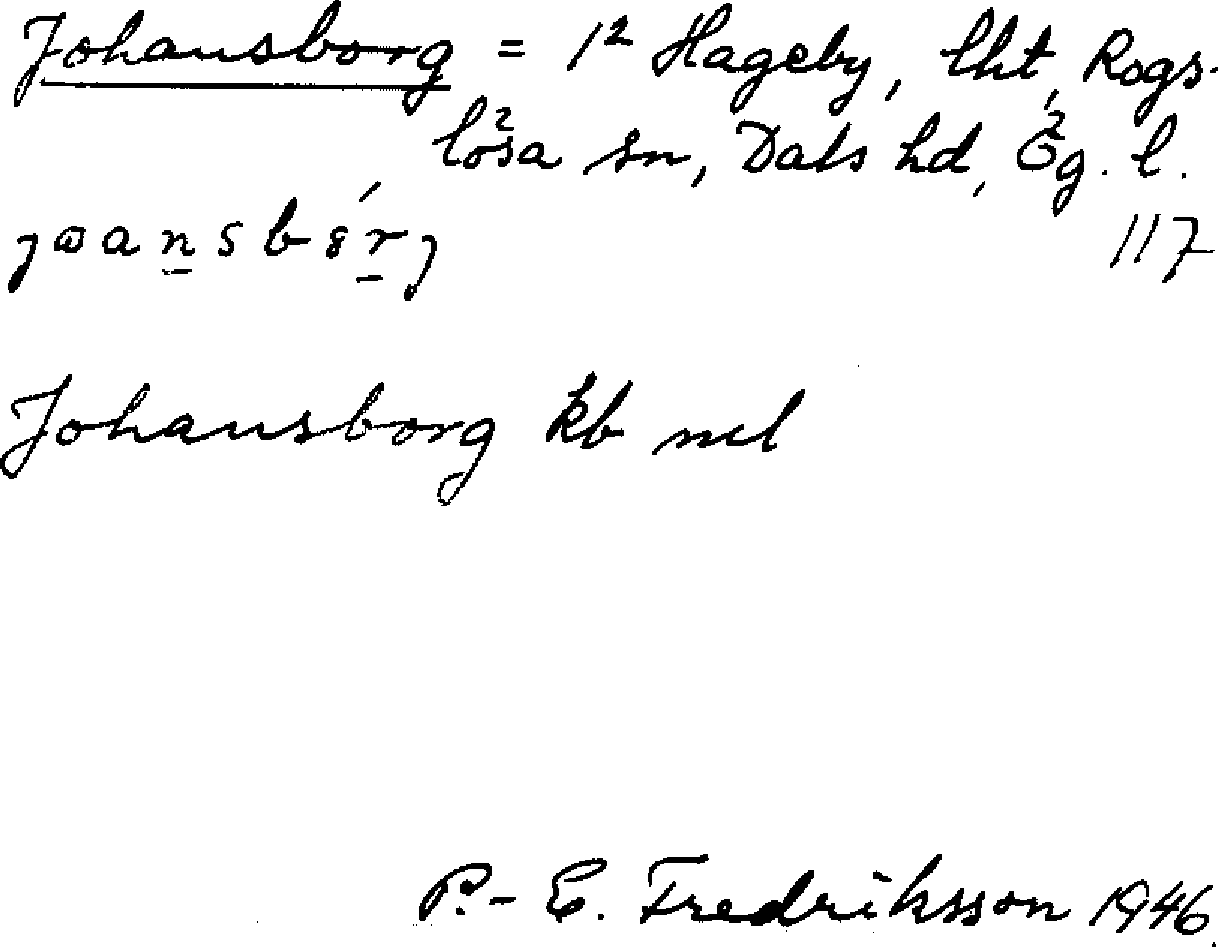 Johansborg = 1² Hageby, lht, Rogs-
lösa sn, Dals hd, Ög. l.
117
Johansborg kb ncl
P.-E. Fredriksson 1946.